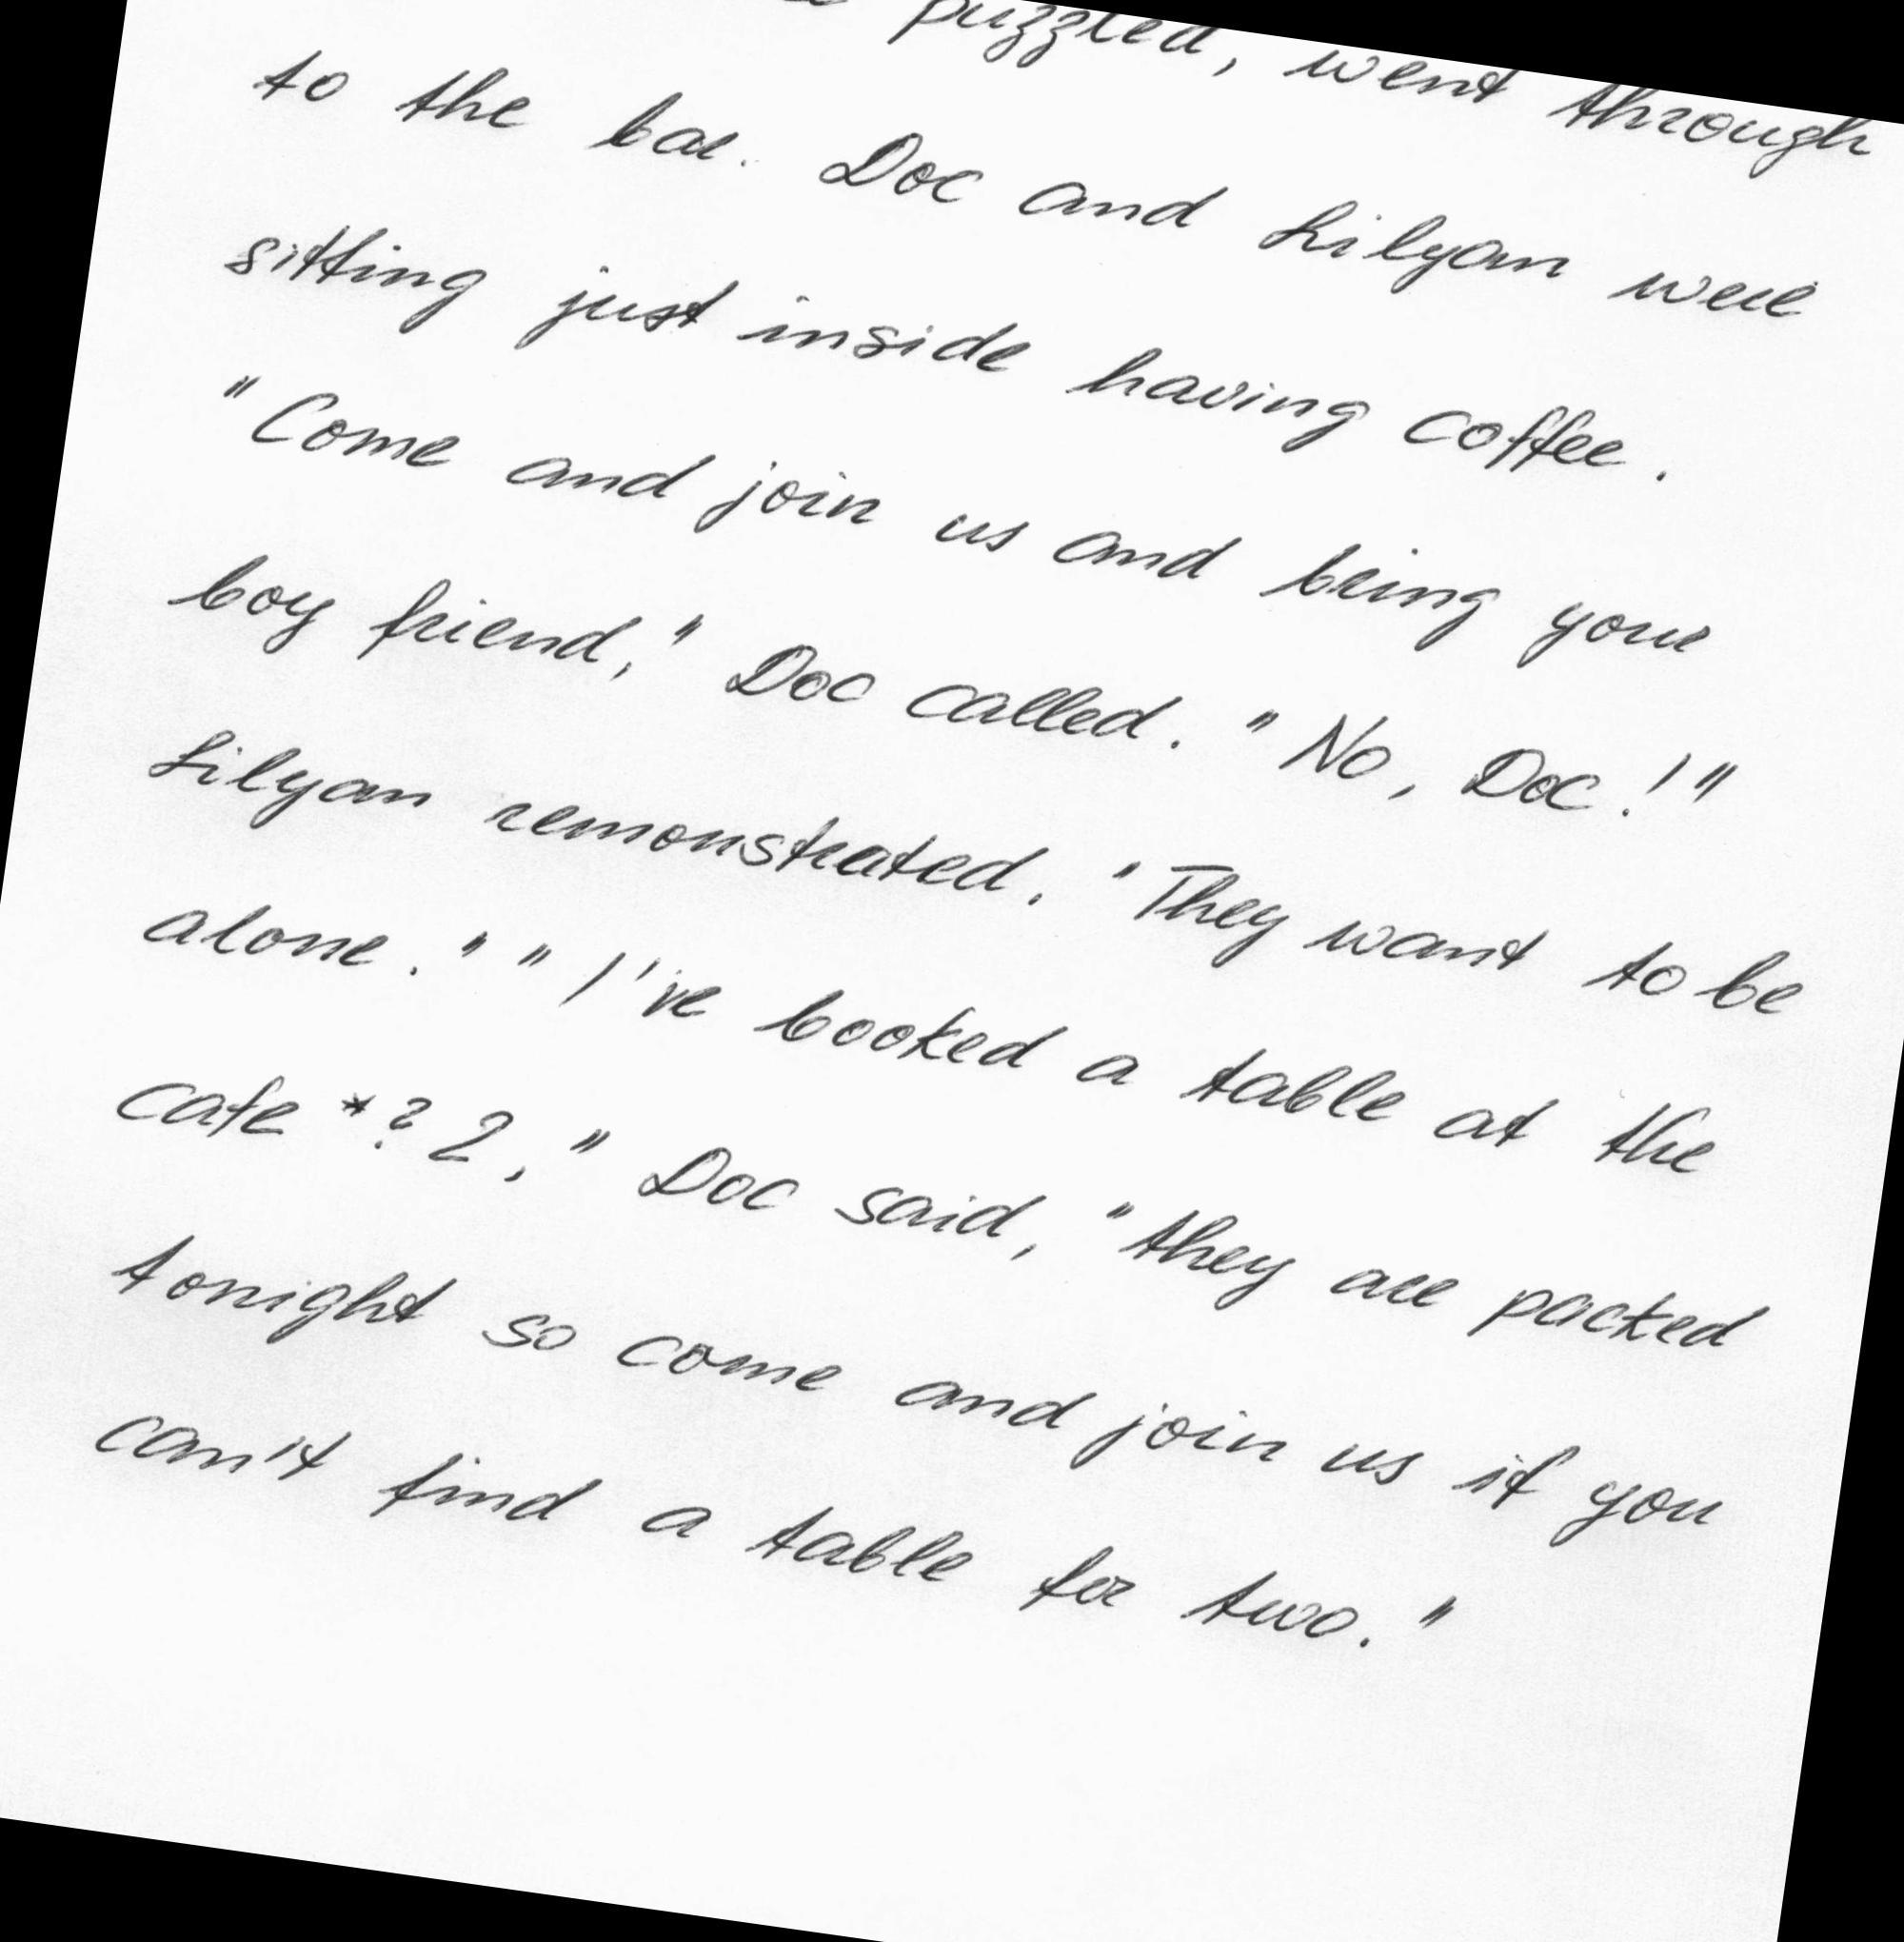 puzzled, went through
to the bar. Doc and Lilyan were
sitting just inside having coffee.
"Come and join us and bring your
boy friend," Doc called. "No, Doc!"
Lilyan remonstrated. "They want to be
alone." "I've booked a table at the
cafe *?2," Doc said, "they are packed
tonight so come and join us if you
can't find a table for two."